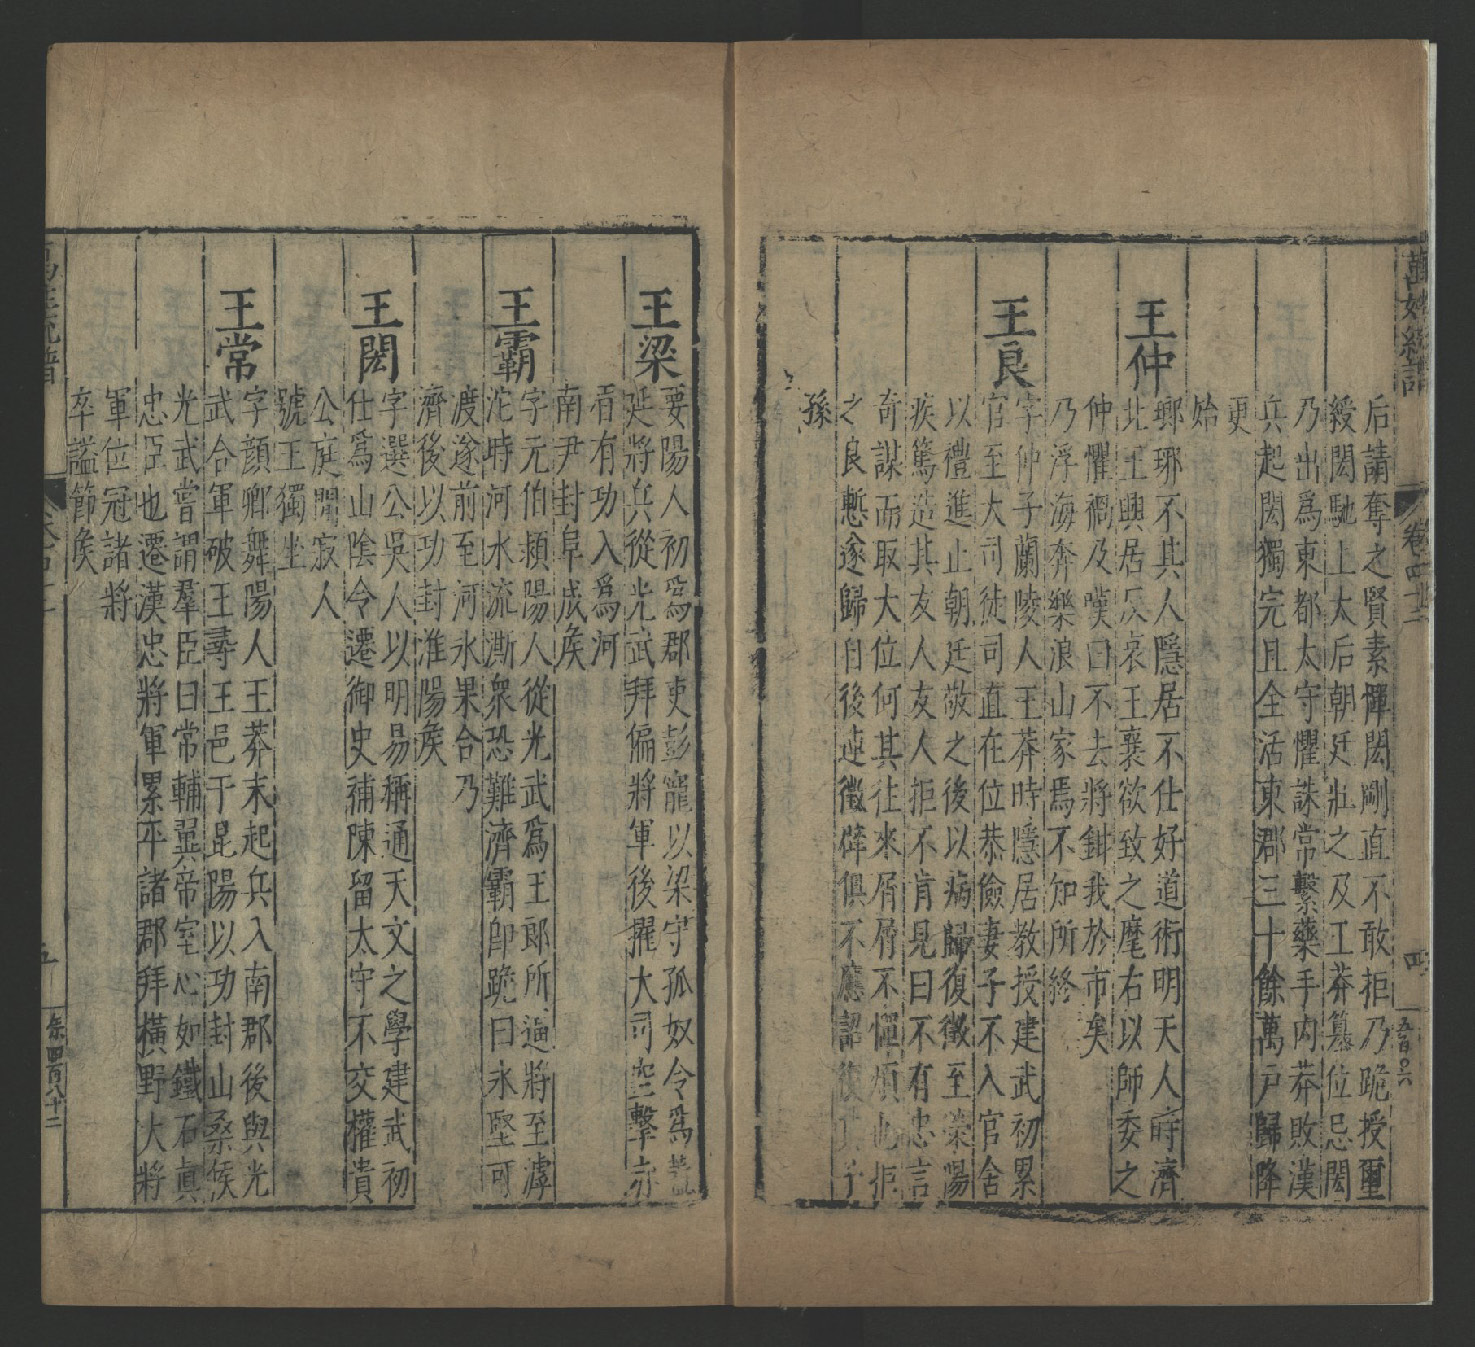 萬姓統譜
卷四十二
四
后請奪之賢素憚閎剛直不敢拒乃跪授璽
綬閎馳上太后朝廷壯之及王莽篡位忌閎
乃出爲東都太守懼誅常繫藥手内莽敗漢
兵起閎獨完且全活東郡三十餘萬戸歸降
更
始
王仲
瑯琊不其人隱居不仕好道術明天人時濟
北王興居反哀王襄欲致之麾右以師委之
仲懼禍及嘆曰不去將鉗我於市矣
乃浮海奔樂浪山家焉不知所終
王良
字仲子蘭陵人王莽時隱居教授建武初累
官至大司徒司直在位恭儉妻子不入官舍
以禮進止朝廷敬之後以病歸復徵至滎陽
疾篤造其友人友人拒不肯見曰不有忠言
奇謀而取大位何其往來屑屑不憚煩也拒
之良慙遂歸自後連徵辟俱不應詔復其子
孫
王梁
要陽人初爲郡吏彭寵以梁守孤奴令爲
延將兵從光武拜偏將軍後擢大司空擊赤
眉有功入爲河
南尹封阜成侯
王霸
字元伯潁陽人從光武爲王郎所逼將至滹
沱時河水流澌衆恐難濟霸卽跪曰氷堅可
渡遂前至河氷果合乃
濟後以功封淮陽侯
王閎
字選公吳人以明易稱通天文之學建武初
仕爲山陰令遷御史補陳留太守不交權貴
公庭閴寂人
號王獨坐
王常
字顏卿舞陽人王莽末起兵入南郡後與光
武合軍破王尋王邑于昆陽以功封山桑侯
光武嘗謂羣臣曰常輔翼帝室心如鐵石眞
忠臣也遷漢忠將軍累平諸郡拜橫野大將
軍位冠諸將
卒謚節侯
五